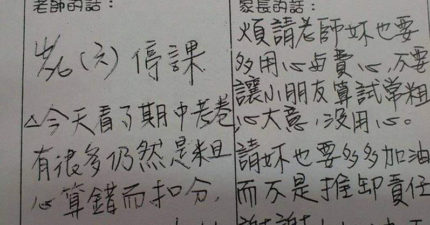 老師的話：
(六)停課
△今天看了期中考卷
有很多仍然是粗
心算錯而扣分，
家長的話：
煩請老師妳也要
多用心占費心，不要
讓小朋友算試常粗
心大意，沒用心。
請妳也要多多加油
而不是推卸責任
謝謝